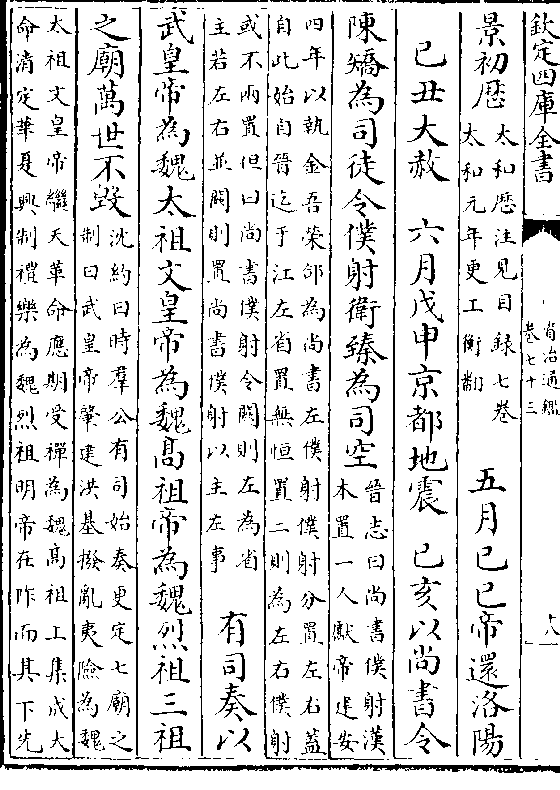 欽定四庫全書
資治通鑑
卷七十三
十八
景初厯太和厯注見目錄七卷
太和元年更工衡翻五月己巳帝還洛陽
己丑大赦六月戊申京都地震己亥以尚書令
陳矯為司徒令僕射衛臻為司空晉志曰尚書僕射漢
本置一人獻帝建安
四年以執金吾榮郃為尚書左僕射僕射分置左右蓋
自此始自晉迄于江左省置無恒置二則為左右僕射
或不兩置但曰尚書僕射令闕則左為省
主若左右並闕則置尚書僕射以主左事有司奏以
武皇帝為魏太祖文皇帝為魏高祖帝為魏烈祖三祖
之廟萬世不毀沈約曰時羣公有司始奏更定七廟之
制曰武皇帝肇建洪基撥亂夷險為魏
太祖文皇帝繼天革命應期受禪為魏高祖上集成大
命清定華夏興制禮樂為魏烈祖明帝在阼而其下先